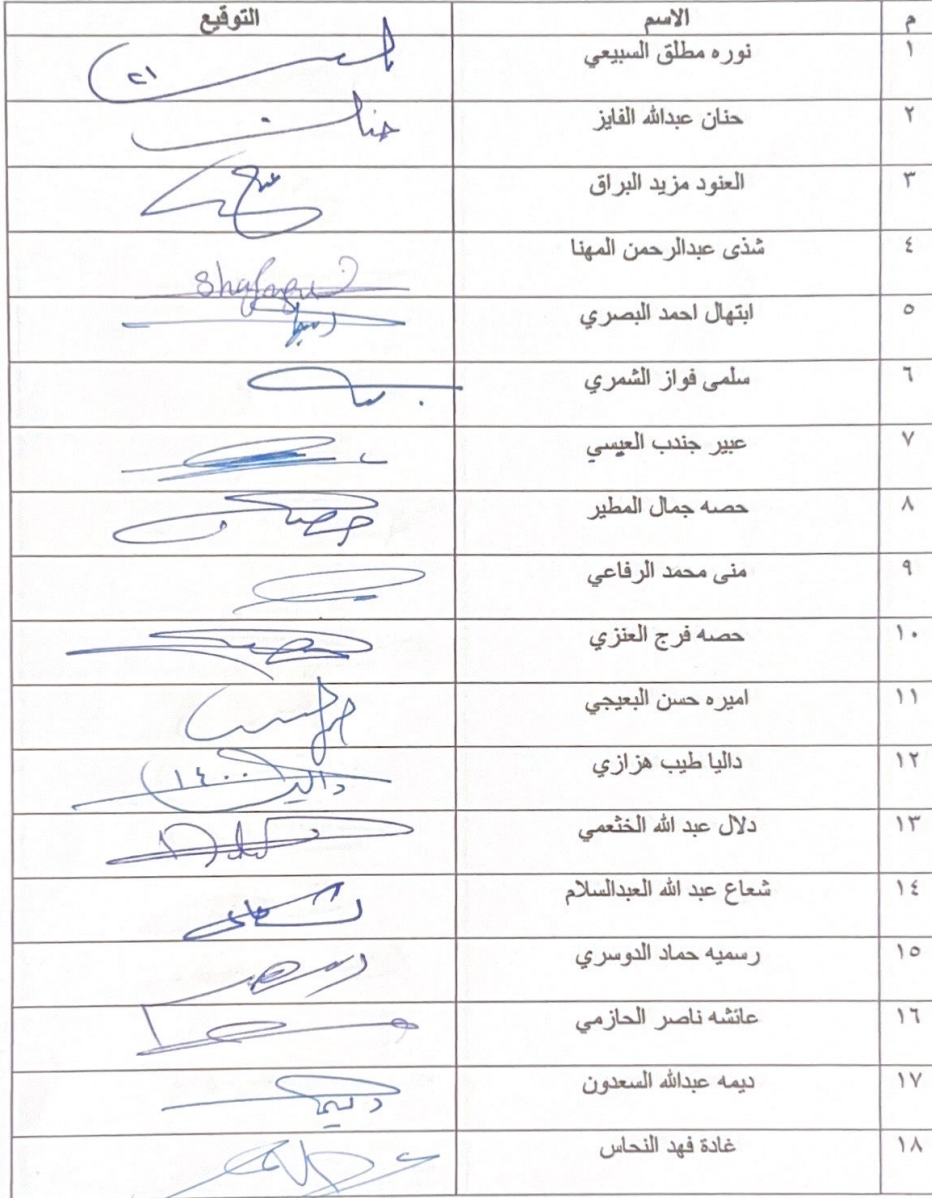 م الاسم التوقيع
١ نوره مطلق السبيعي
٢ حنان عبدالله الفايز حنان
٣ العنود مزيد البراق
٤ شذى عبدالرحمن المهنا
٥ ابتهال احمد البصري
٦ سلمى فواز الشمري
٧ عبير جندب العيسي
٨ حصه جمال المطير حصه
٩ منى محمد الرفاعي
١٠ حصه فرج العنزي حصه
١١ اميره حسن البعيجي
١٢ داليا طيب هزازي داليا ١٤٠٠
١٣ دلال عبد الله الخثعمي
١٤ شعاع عبد الله العبدالسلام شعاع
١٥ رسميه حماد الدوسري
١٦ عائشه ناصر الحازمي
١٧ ديمه عبدالله السعدون ديمه
١٨ غادة فهد النحاس